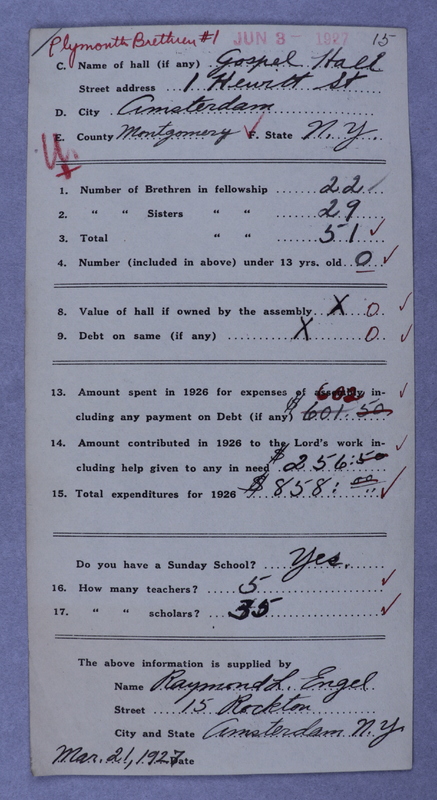 Plymouth Brethren #1 JUN 3 - 1927 15
C. Name of hall (if any) Gospel Hall
Street address 1 Hewitt St
D. City Amsterdam
E. County Montgomery F. State N.Y.
1. Number of Brethren in fellowship 22
2. " " Sisters " " 29
3. Total " " 51
4. Number (included in above) under 13 yrs. old 0
8. Value of hall if owned by the assembly X 0
9. Debt on same (if any) X 0
13. Amount spent in 1926 for expenses of assembly in-
602
cluding any payment on Debt (if any) $601.50
14. Amount contributed in 1926 to the Lord's work in-
cluding help given to any in need $256.50
15. Total expenditures for 1926 $858.00
Do you have a Sunday School? Yes.
16. How many teachers? 5
17. " " scholars? 35
The above information is supplied by
Name Raymond L. Engel
Street 15 Rockton
City and State Amsterdam N.Y.
Mar. 21, 1927 Date